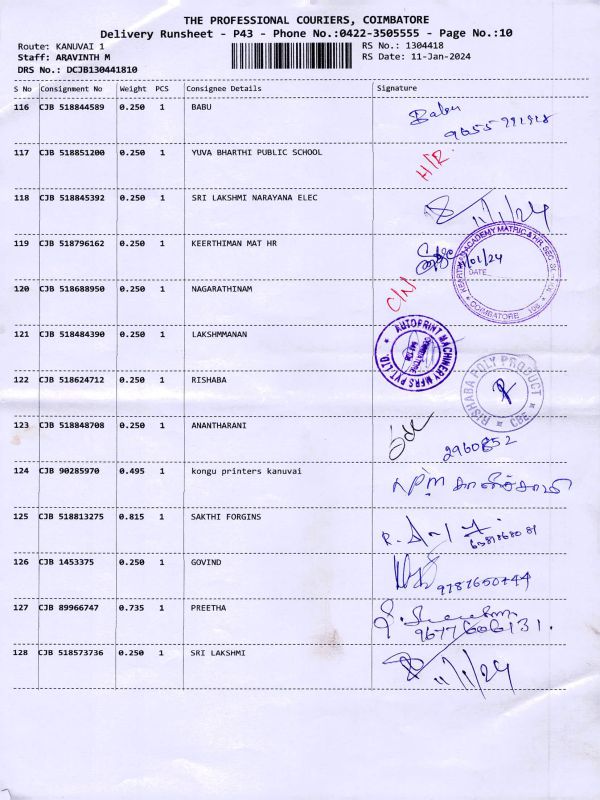 THE PROFESSIONAL COURIERS, COIMBATORE
Delivery Runsheet - P43 - Phone No.:0422-3505555 - Page No.:10
Route: KANUVAI 1 RS No.: 1304418
Staff: ARAVINTH M RS Date: 11-Jan-2024
DRS No.: DCJB130441810
S No Consignment No Weight PCS Consignee Details Signature
116 CJB 518844589 0.250 1 BABU Babu
117 CJB 518851200 0.250 1 YUVA BHARTHI PUBLIC SCHOOL H/R
118 CJB 518845392 0.250 1 SRI LAKSHMI NARAYANA ELEC 11/1/24
119 CJB 518796162 0.250 1 KEERTHIMAN MAT HR 11/01/24
DATE
COIMBATORE
120 CJB 518688950 0.250 1 NAGARATHINAM C/N
121 CJB 518484390 0.250 1 LAKSHMMANAN AUTOPRINT MACHINERY MFRS PVT. LTD.
122 CJB 518624712 0.250 1 RISHABA RISHABA POLY PRODUCT CBE
123 CJB 518848708 0.250 1 ANANTHARANI
124 CJB 90285970 0.495 1 kongu printers kanuvai
125 CJB 518813275 0.815 1 SAKTHI FORGINS
126 CJB 1453375 0.250 1 GOVIND 9787650744
127 CJB 89966747 0.735 1 PREETHA 9677606131.
128 CJB 518573736 0.250 1 SRI LAKSHMI 11/1/24